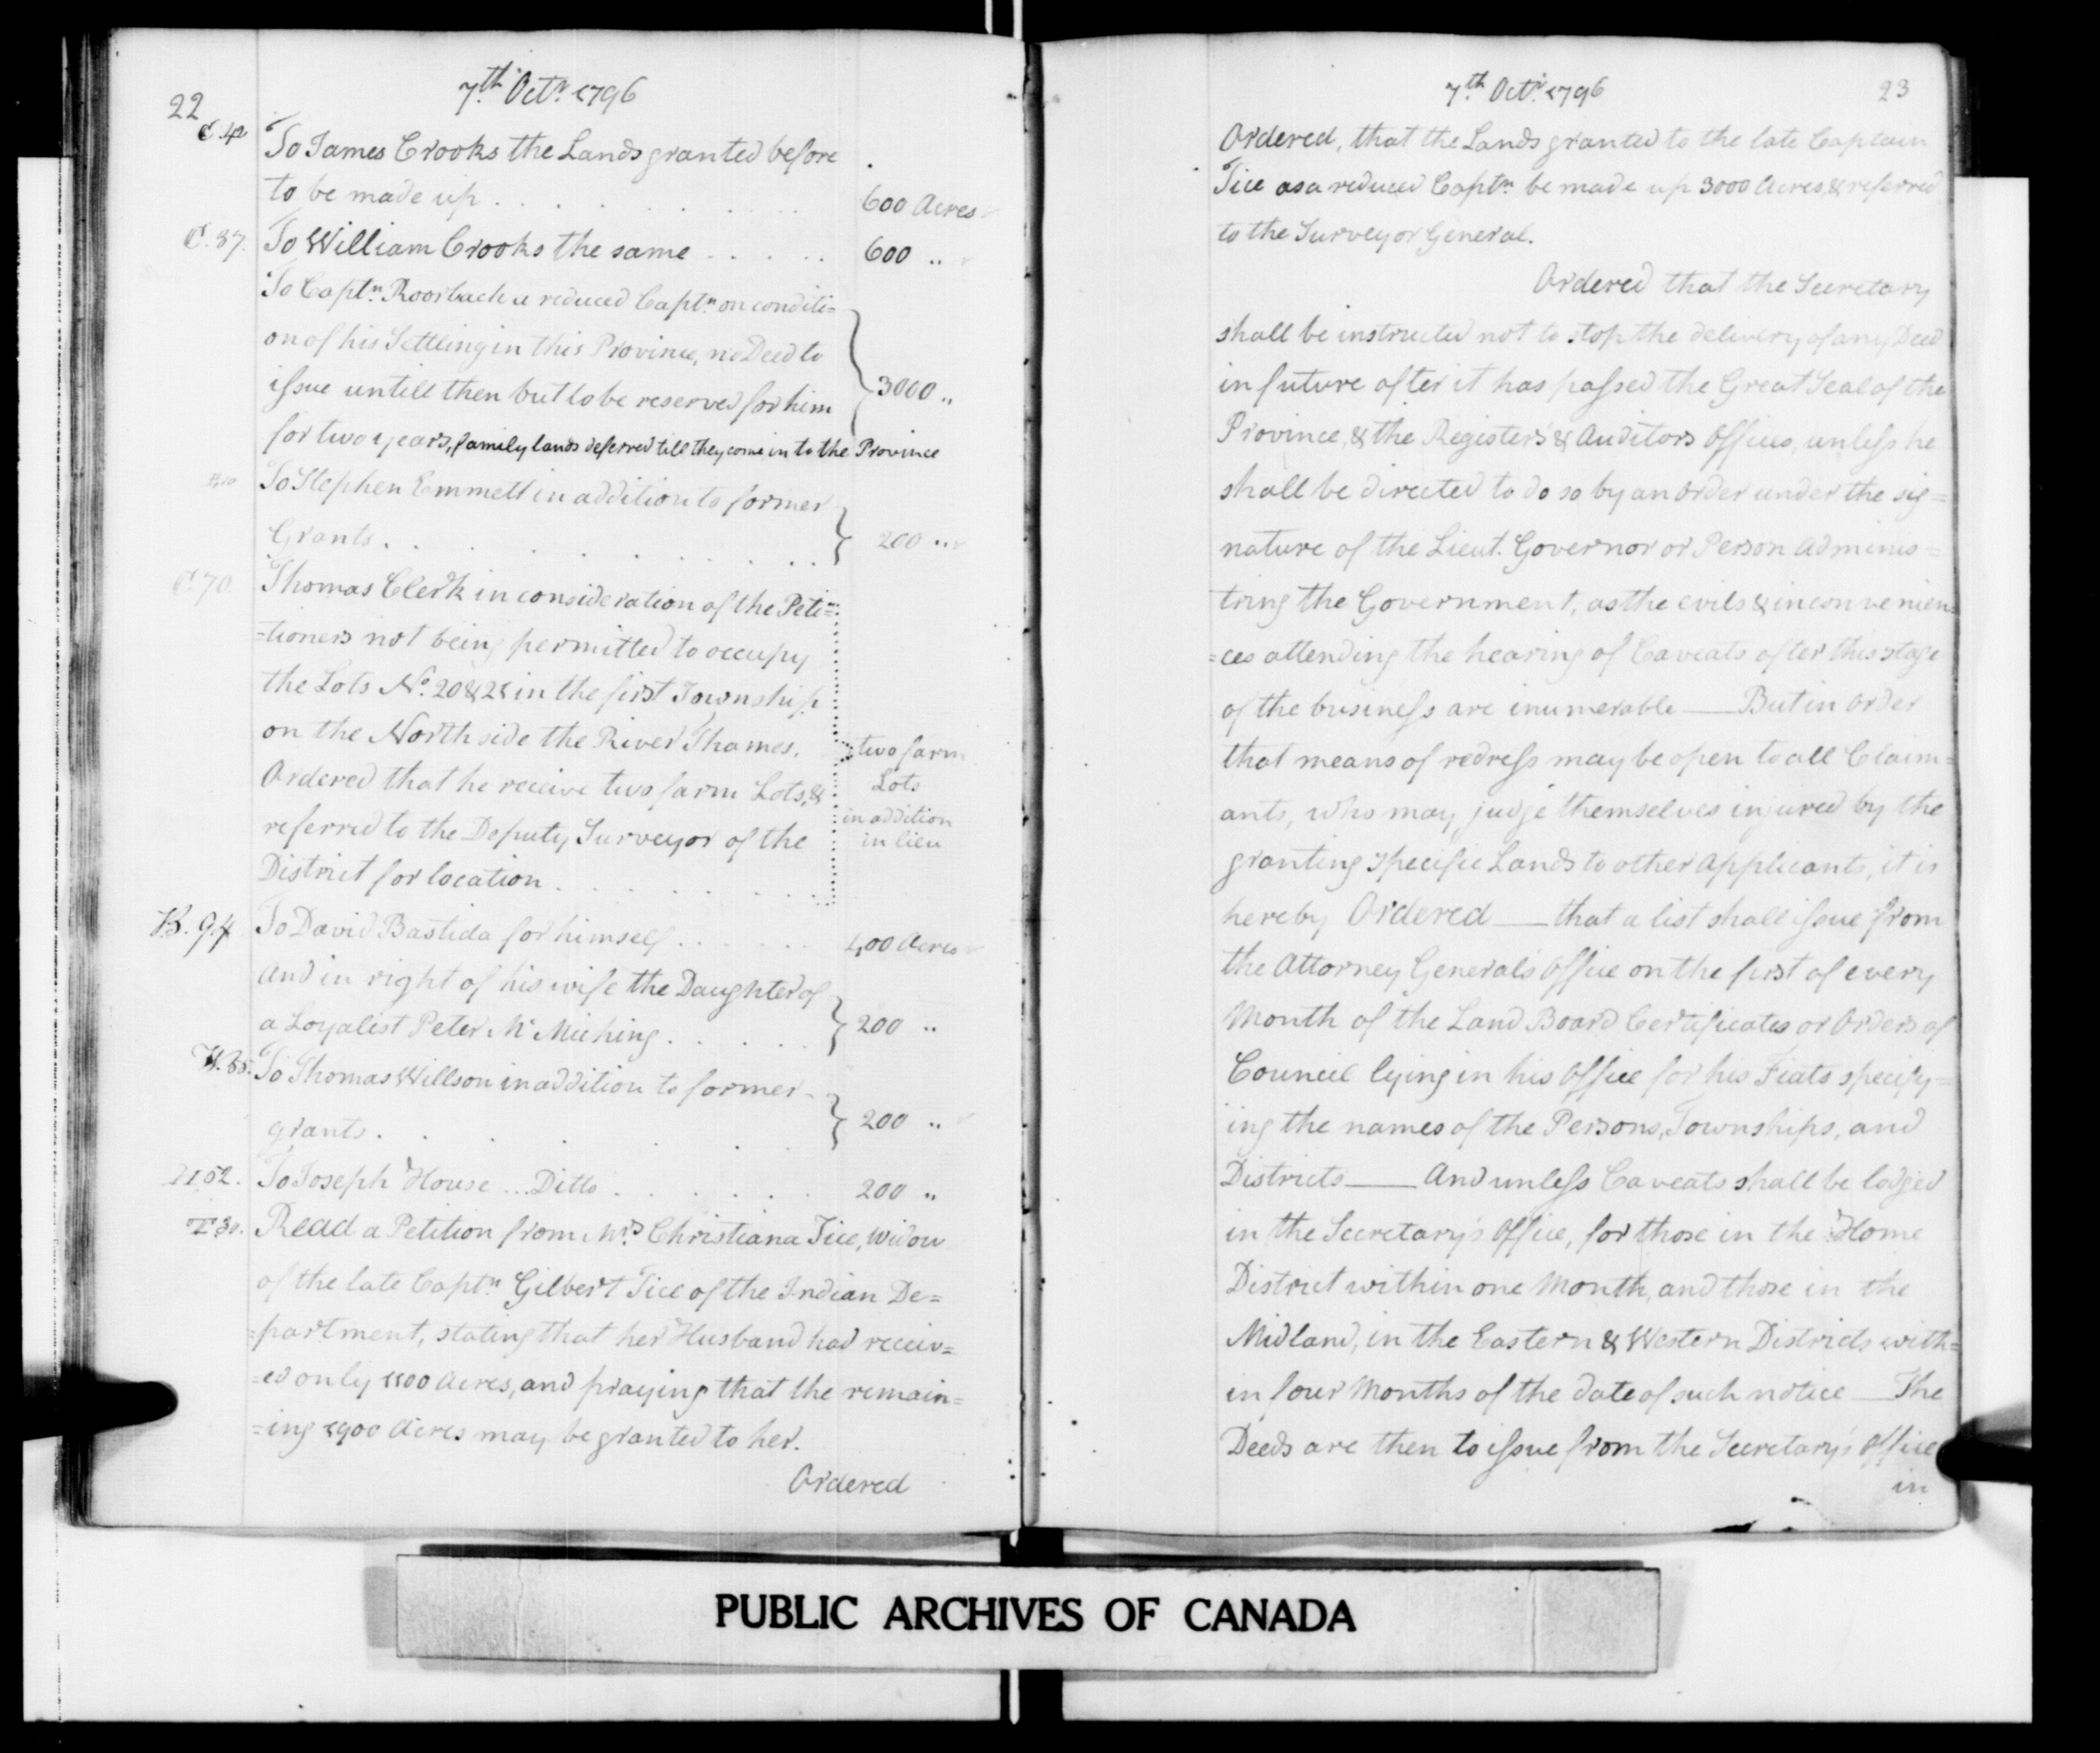 22
7th Octr. 1796
C. 42 To James Crooks the Lands granted before
to be made up . . . . . . . 600 Acres
C. 37. To William Crooks the same . . . . . 600 "
To Captn. Roorbach a reduced Captn. on conditi=
on of his Settling in this Province, no Deed to
issue untill then but to be reserved for him 3000 "
for two years, family lands deferred till they come in to the Province
To Stephen Emmett in addition to former
Grants . . . . . . . . 200 "
C. 70. Thomas Clerk in consideration of the Peti=
=tioners not being permitted to occupy
the Lots No. 20 & 21 in the first Township
on the North side the River Thames.
Ordered that he receive two farm Lots, &
referred to the Deputy Surveyor of the
District for location . . . . . . .
two farm
Lots
in addition
in lieu
B. 94 To David Bastida for himself . . . . . . 400 Acres
And in right of his wife the Daughter of
a Loyalist Peter Mc Miching . . . . . 200 "
W. 35. To Thomas Willson in addition to former
grants . . . . . . 200 "
H 52. To Joseph House ... Ditto . . . . . . 200 "
T 30. Read a Petition from Mrs. Christiana Tice, Widow
of the late Captn. Gilbert Tice of the Indian De=
=partment, stating that her Husband had receiv=
=ed only 1100 Acres, and praying that the remain=
=ing 1900 Acres may be granted to her.
Ordered
7th Octr. 1796
23
Ordered, that the Lands granted to the late Captain
Tice as a reduced Captn. be made up 3000 Acres, & referred
to the Surveyor General.
Ordered that the Secretary
shall be instructed not to stop the delivery of any Deed
in future after it has passed the Great Seal of the
Province, & the Registers & Auditors Offices, unless he
shall be directed to do so by an Order under the sig=
nature of the Lieut. Governor or Person Adminis=
tring the Government, as the evils & inconvenien=
=ces attending the hearing of Caveats after this stage
of the business are inumerable — But in order
that means of redress may be open to all Claim=
ants, who may judge themselves injured by the
granting specific Lands to other Applicants, it is
hereby Ordered — that a list shall issue from
the Attorney General's Office on the first of every
Month of the Land Board Certificates or Orders of
Council lying in his Office for his Fiats specify=
ing the names of the Persons, Townships, and
Districts — And unless Caveats shall be lodged
in the Secretary's Office, for those in the Home
District within one Month, and those in the
Midland, in the Eastern & Western Districts with=
in four Months of the date of such notice — The
Deeds are then to issue from the Secretary's Office
in
PUBLIC ARCHIVES OF CANADA